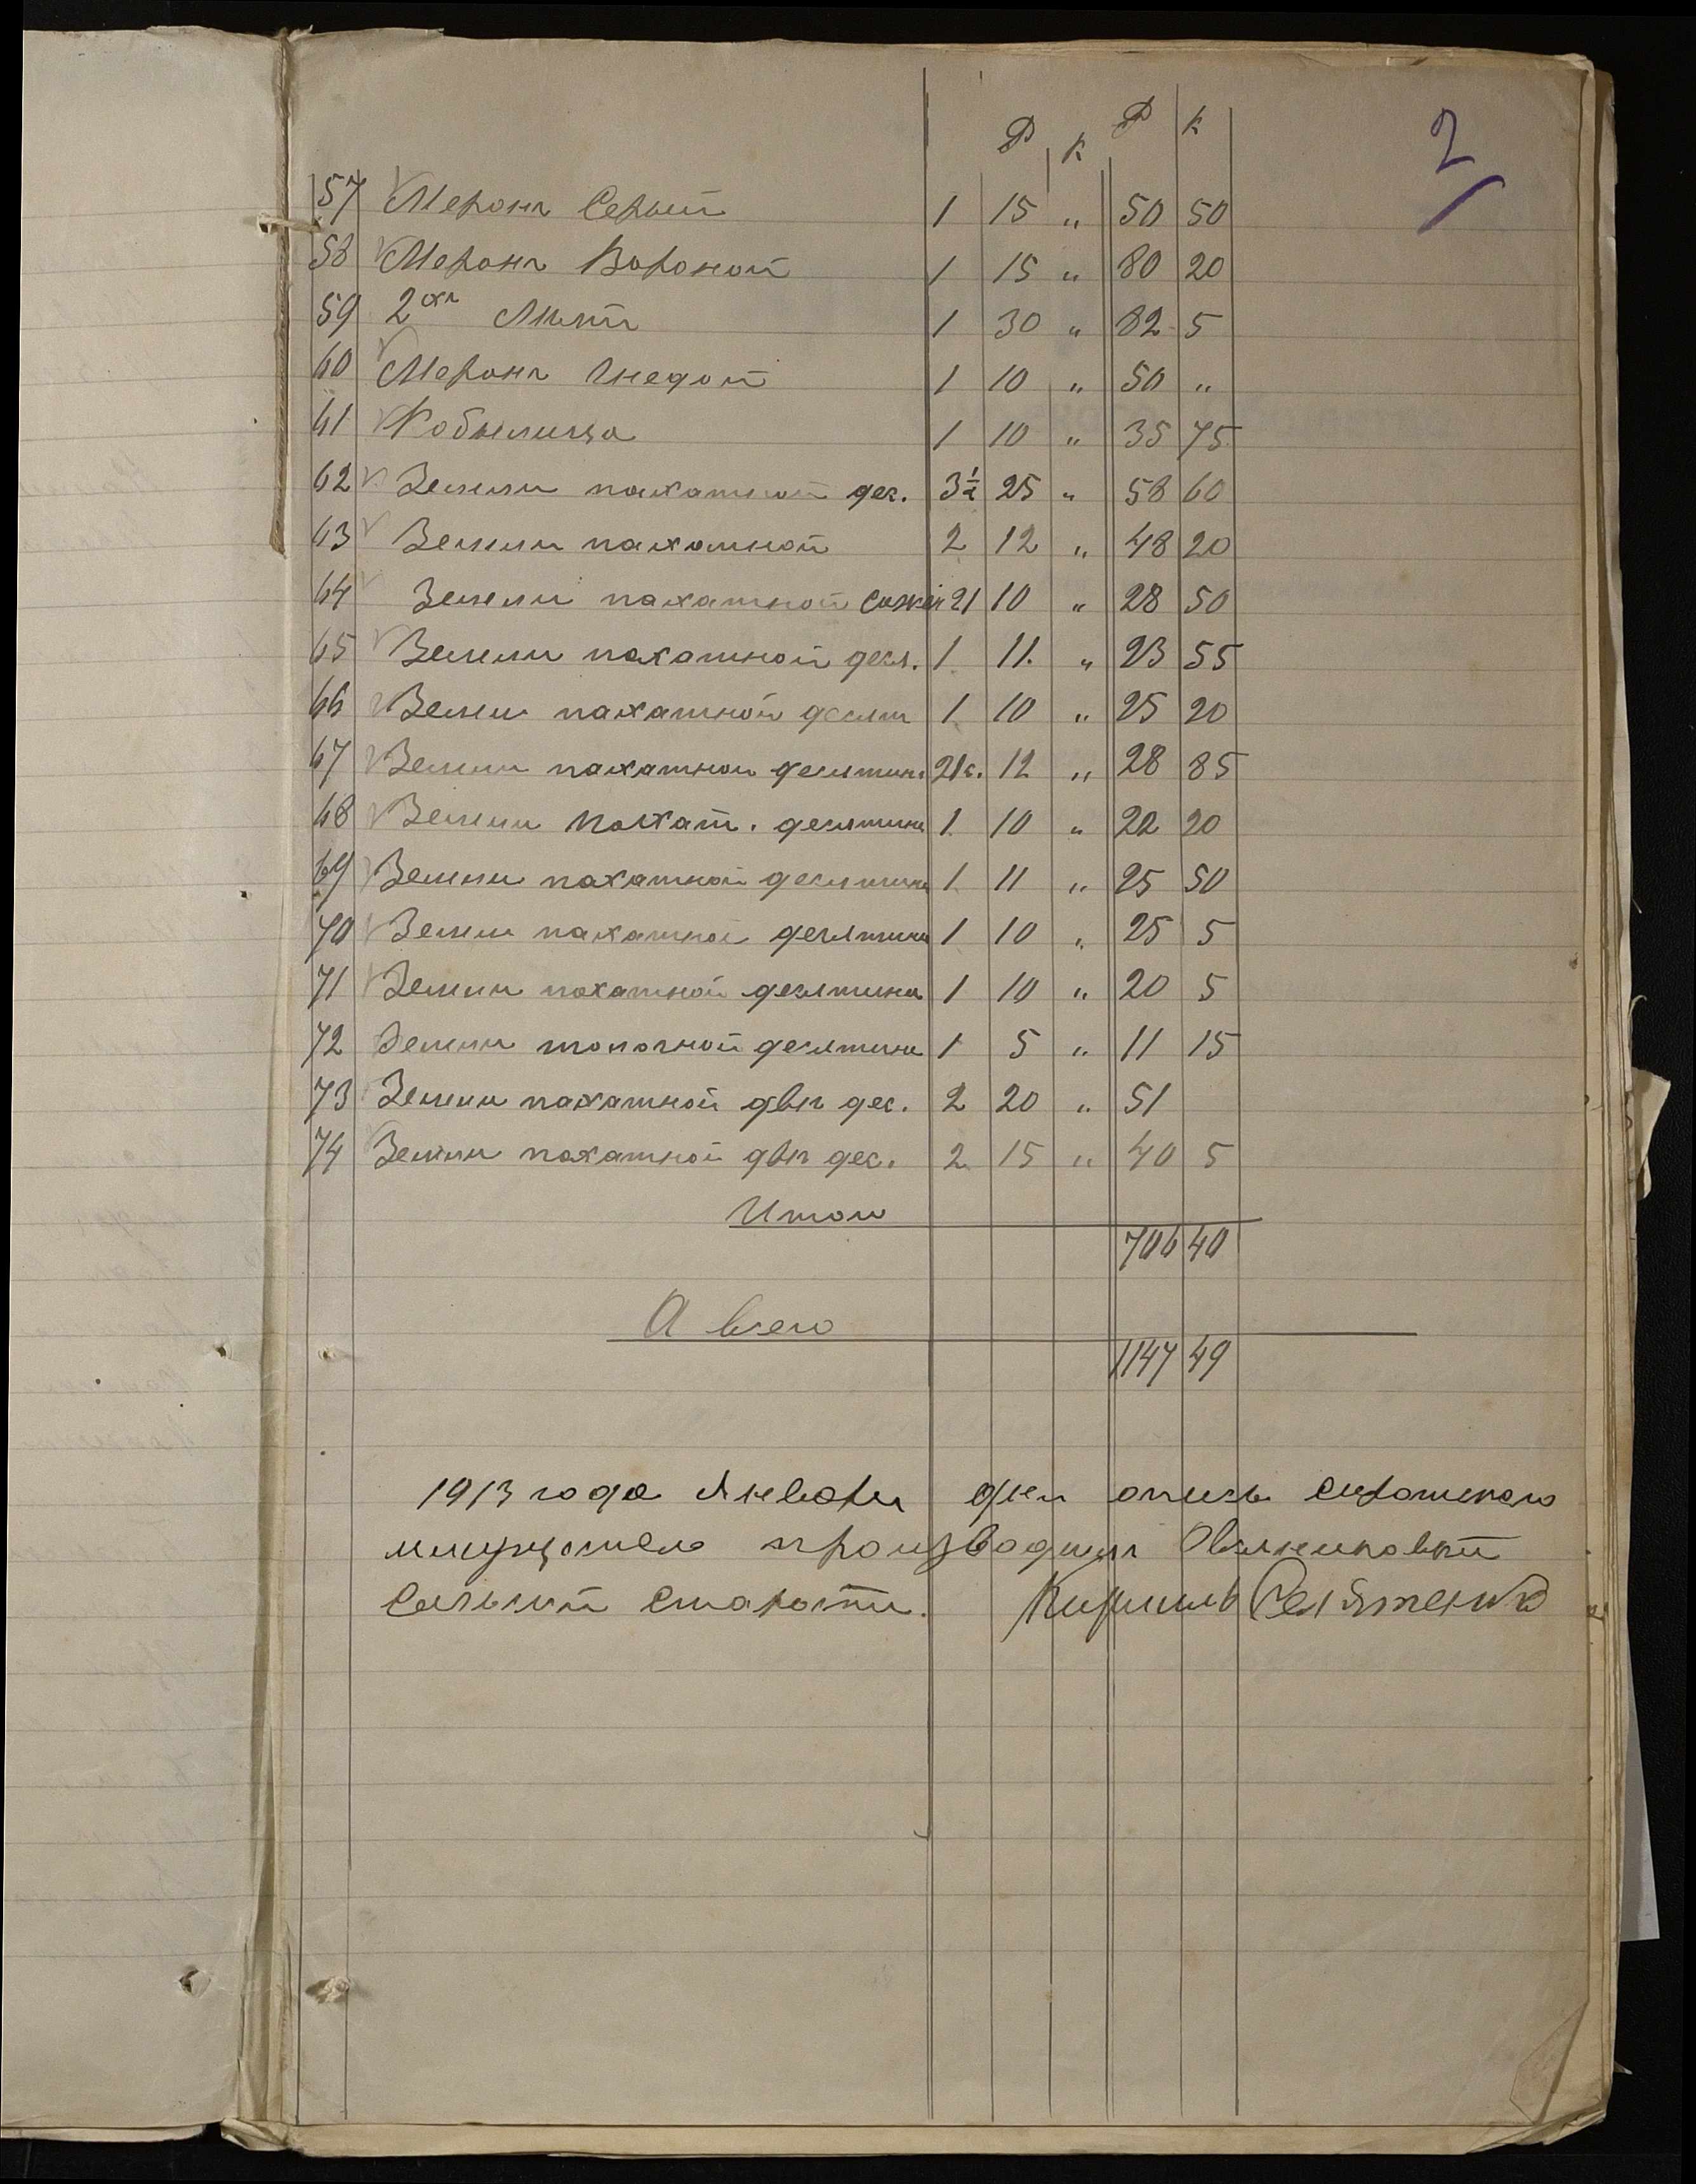 2
Р к Р к
57 Меронъ Серый 1 15 " 50 50
58 Меронъ Вороной 1 15 " 80 20
59 2хъ Лѣтъ 1 30 " 82 5
60 Меронъ Гнедой 1 10 " 50 "
61 Кобылица 1 10 " 35 75
62 Земли пахатной дес. 3½ 25 " 58 60
63 Земли пахатной 2 12 " 48 20
64 Земли пахатной сажен 21 10 " 28 50
65 Земли пахатной деся. 1 11. " 23 55
66 Земли пахатной десят 1 10 " 25 20
67 Земли пахатной десятин. 21с. 12 " 28 85
68 Земли пахат. десятина 1 10 " 22 20
69 Земли пахатной десятина 1 11 " 25 50
70 Земли пахатной десятина 1 10 " 25 5
71 Земли пахатной десятина 1 10 " 20 5
72 Земли толочной десятина 1 5 " 11 15
73 Земли пахатной двѣ дес. 2 20 " 51
74 Земли пахатной двѣ дес. 2 15 " 40 5
Итого
706 40
А всего
1147 49
1913 года Января дня опись сиротского
имущества производилъ
Сельский Староста. Кирилъ